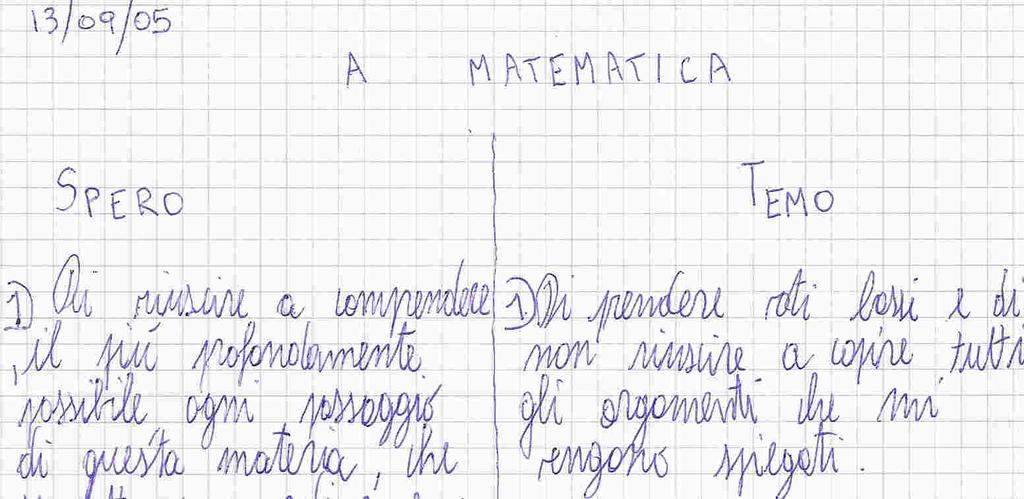 13/09/05
A MATEMATICA
SPERO
1) Di riuscire a comprendere
il più profondamente
possibile ogni passaggio
di questa materia, che
TEMO
1) Di prendere voti bassi e di
non riuscire a capire tutti
gli argomenti che mi
vengono spiegati.